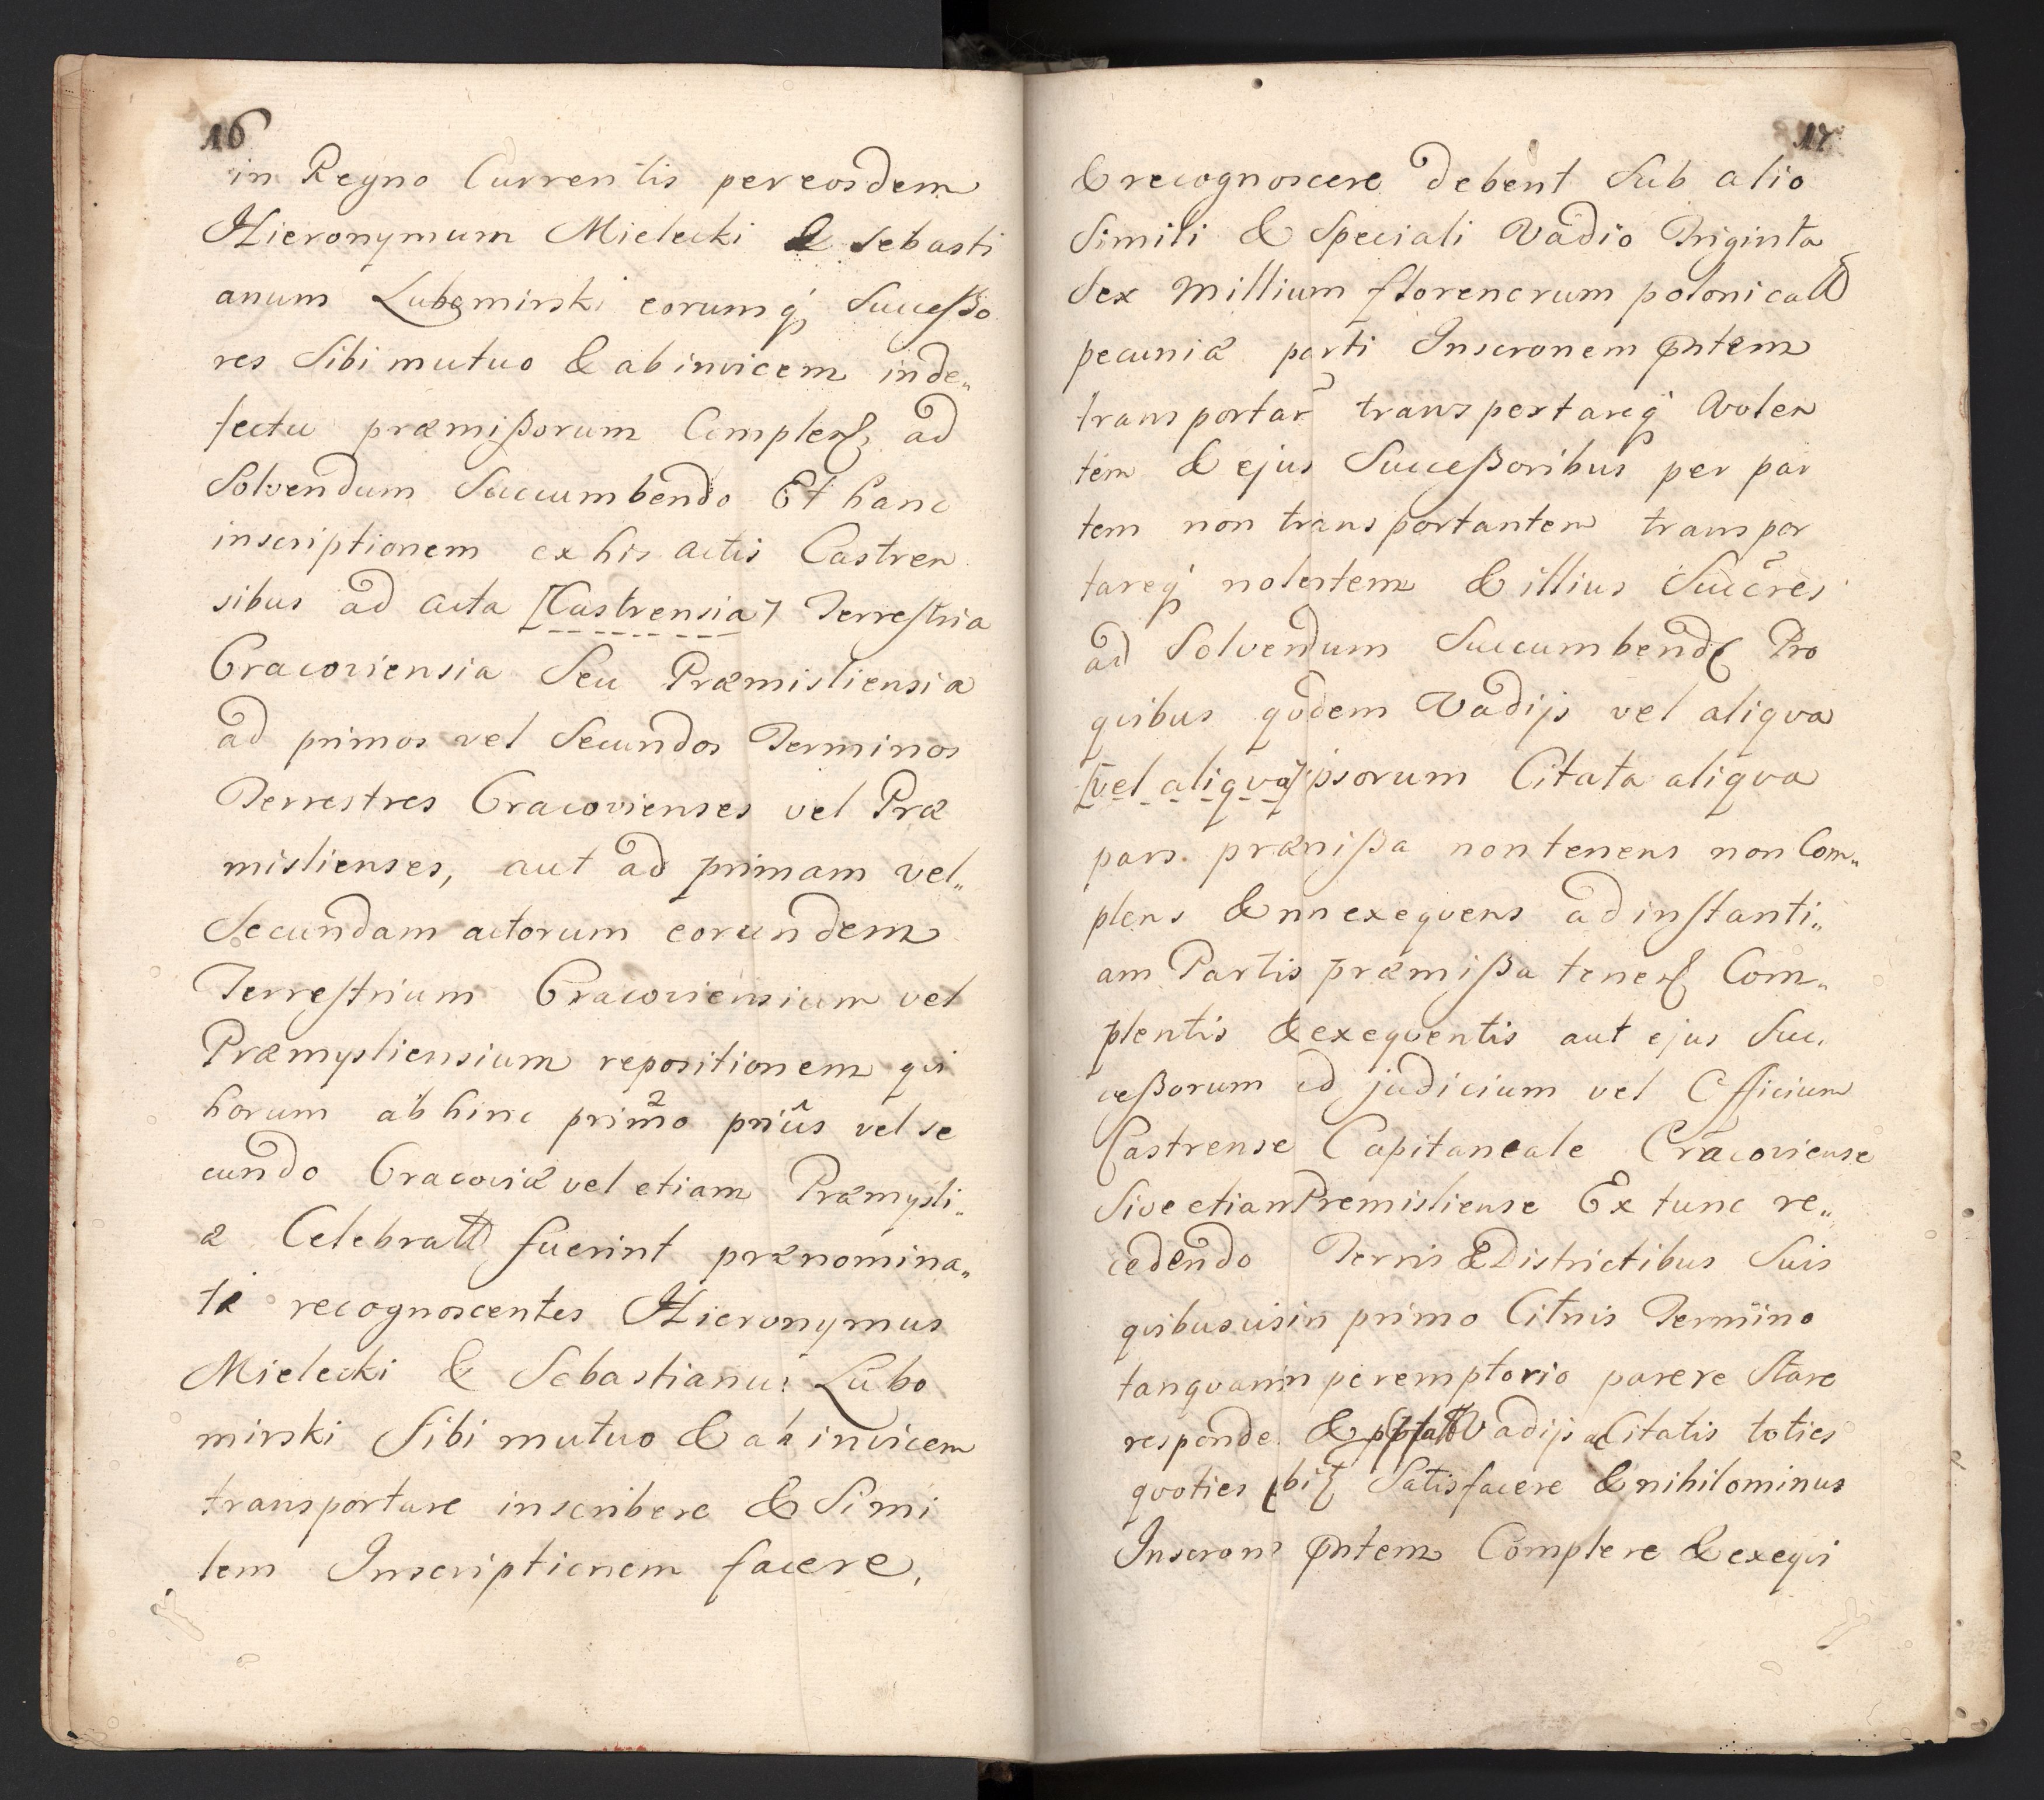 16
in Regno Currentis per eosdem
Hieronymum Mielecki & Sebasti
anum Lubomirski eorumq́ Succeßo
res Sibi mutuo & ab invicem inde„
fectu præmißorum Complen ad
Solvendum Succumbendo Et hanc
inscriptionem ex his actis Castren
sibus ad acta [Castrensia] Terrestria
Cracoviensia Seu Præmisliensia
ad primos vel Secundos Terminos
Terrestres Cracovienses vel Præ
mislienses, aut ad primam vel„
Secundam actorum eorundem
Terrestrium Cracoviensium vel
Præmysliensium repositionem qvi
horum abhinc primo priûs vel se
cundo Cracoviæ vel etiam Præmysli„
æ Celebrat fuerint prænomina„
ti recognoscentes Hieronymus
Mielecki & Sebastianus Lubo
mirski Sibi mutuo & ab invicem
transportare inscribere & Simi
lem Inscriptionem facere,
17
& recognoscere debent Sub alio
Simili & Speciali Vadio Triginta
Sex Millium florenorum polonical
pecuniæ parti Inscronem pntem
transportan transportareq́ volen
tem & ejus Succeßoribus per par
tem non transportantem transpor
tareq́ nolentem & illius Succres
ad Solvendum Succumbend Pro
qvibus qvdem Vadijs vel aliqva
[vel aliqva] ipsorum Citata aliqva
pars præmißa non tenens non Com„
plens & nn exeqvens ad instanti„
am Partis præmißa tenen Com„
plentis & exeqventis aut ejus Suc,
ceßorum ad judicium vel Officium
Castrense Capitaneale Cracoviense
Sive etiam Premisliense Ex tunc re„
cedendo Terris & Districtibus Suis
qvibusvis in primo Citnis Termino
tanqvam in peremptorio parere Stare
responde & Vadijs ac Citatis toties
qvoties Satisfacere & nihilominus
Inscron pntem Complere & exeqvi